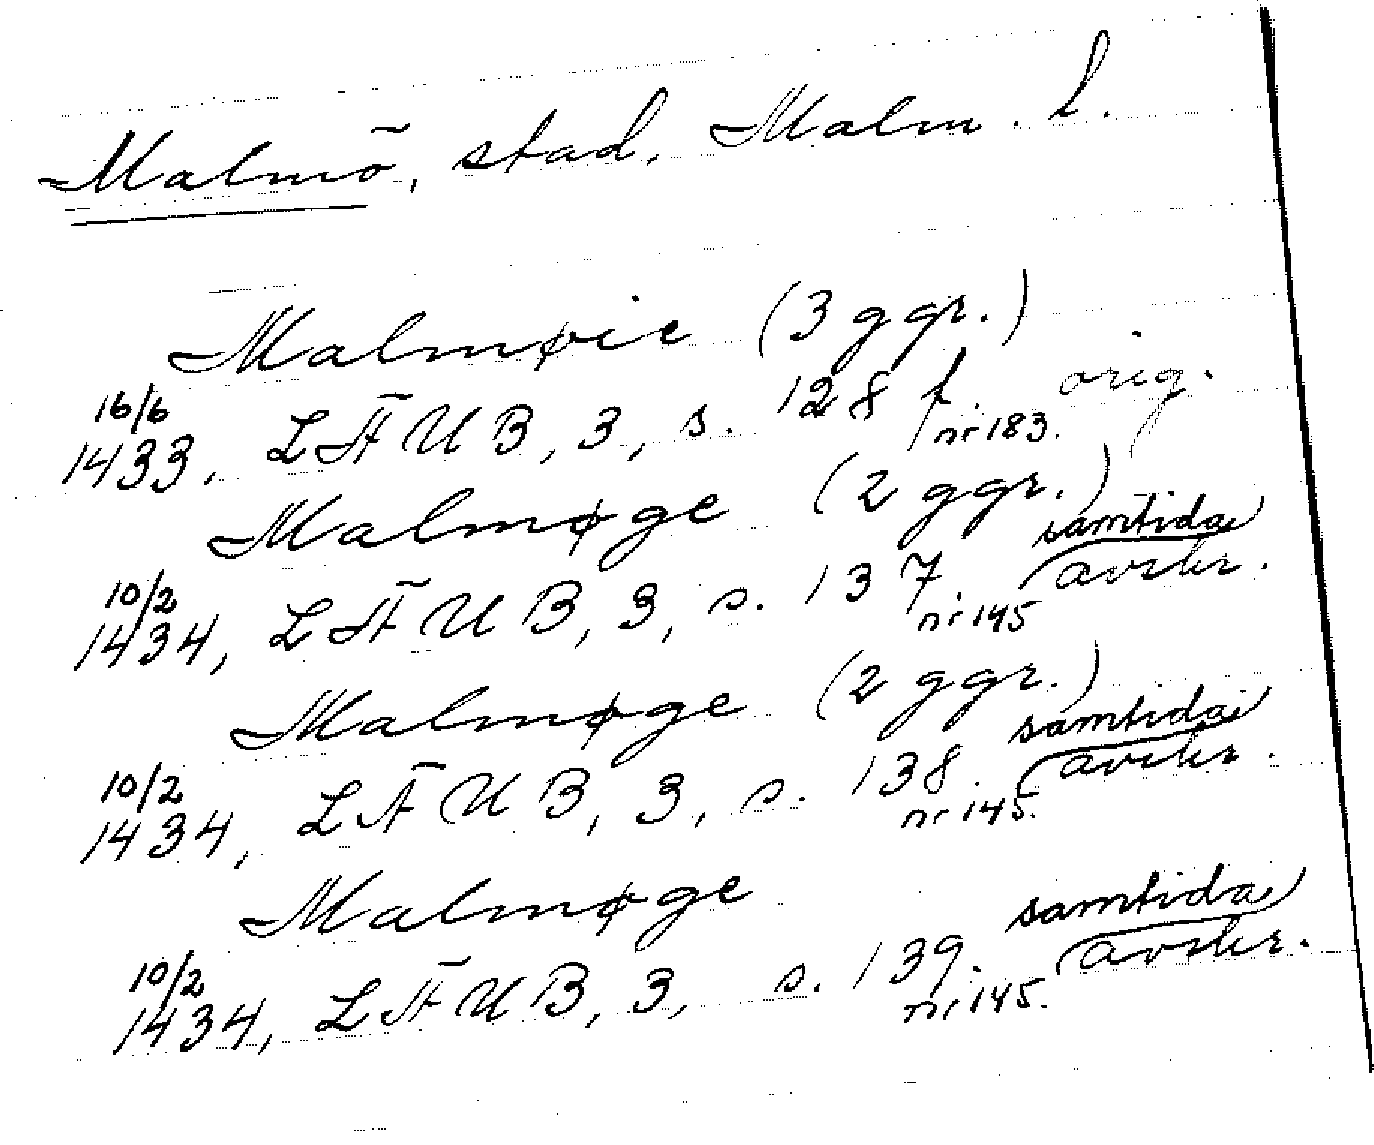 Malmö, stad, Malm. l.
Malmøie (3 ggr.)
16/6
1433, LÄUB, 3, s. 128 f. orig.
nr 183.
Malmøge (2 ggr.)
samtida
10/2
1434, LÄUB, 3, s. 137. avskr.
nr 145
Malmøge (2 ggr.)
samtida
10/2
1434, LÄUB, 3, s. 138. avskr.
nr 145.
Malmøge
samtida
10/2
1434, LÄUB, 3, s. 139. avskr.
nr 145.